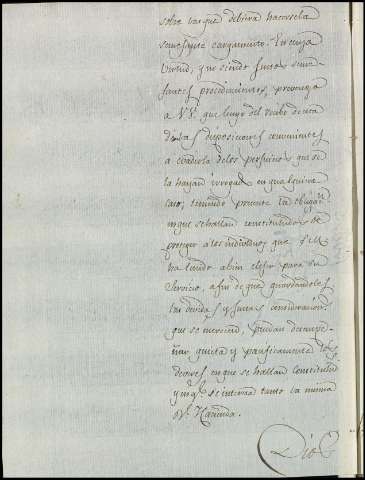 sobre las que debiera hacersela
semejante cargamento. En cuya
virtud, y no siendo justos seme-
jantes procedimientos, prevengo
a VS. que luego del recibo de esta
de las disposiciones convenientes
a de los perjuicios que se
la hayan irrogado en qualquiera
caso, teniendo presente la obligaⁿ.
en que se hallan constituidos de
proteger a los individuos que S. M.
ha tenido a bien elejir para su
Servicio, a fin de que guardandoles
las devidas y justas consideracioⁿ.
que se merecen, puedan desempe-
ñar quieta y pacificamente los
deveres en que se hallan constituidos
y en q.^e se interesa tanto la misma
R.^l Hacienda.
Dios